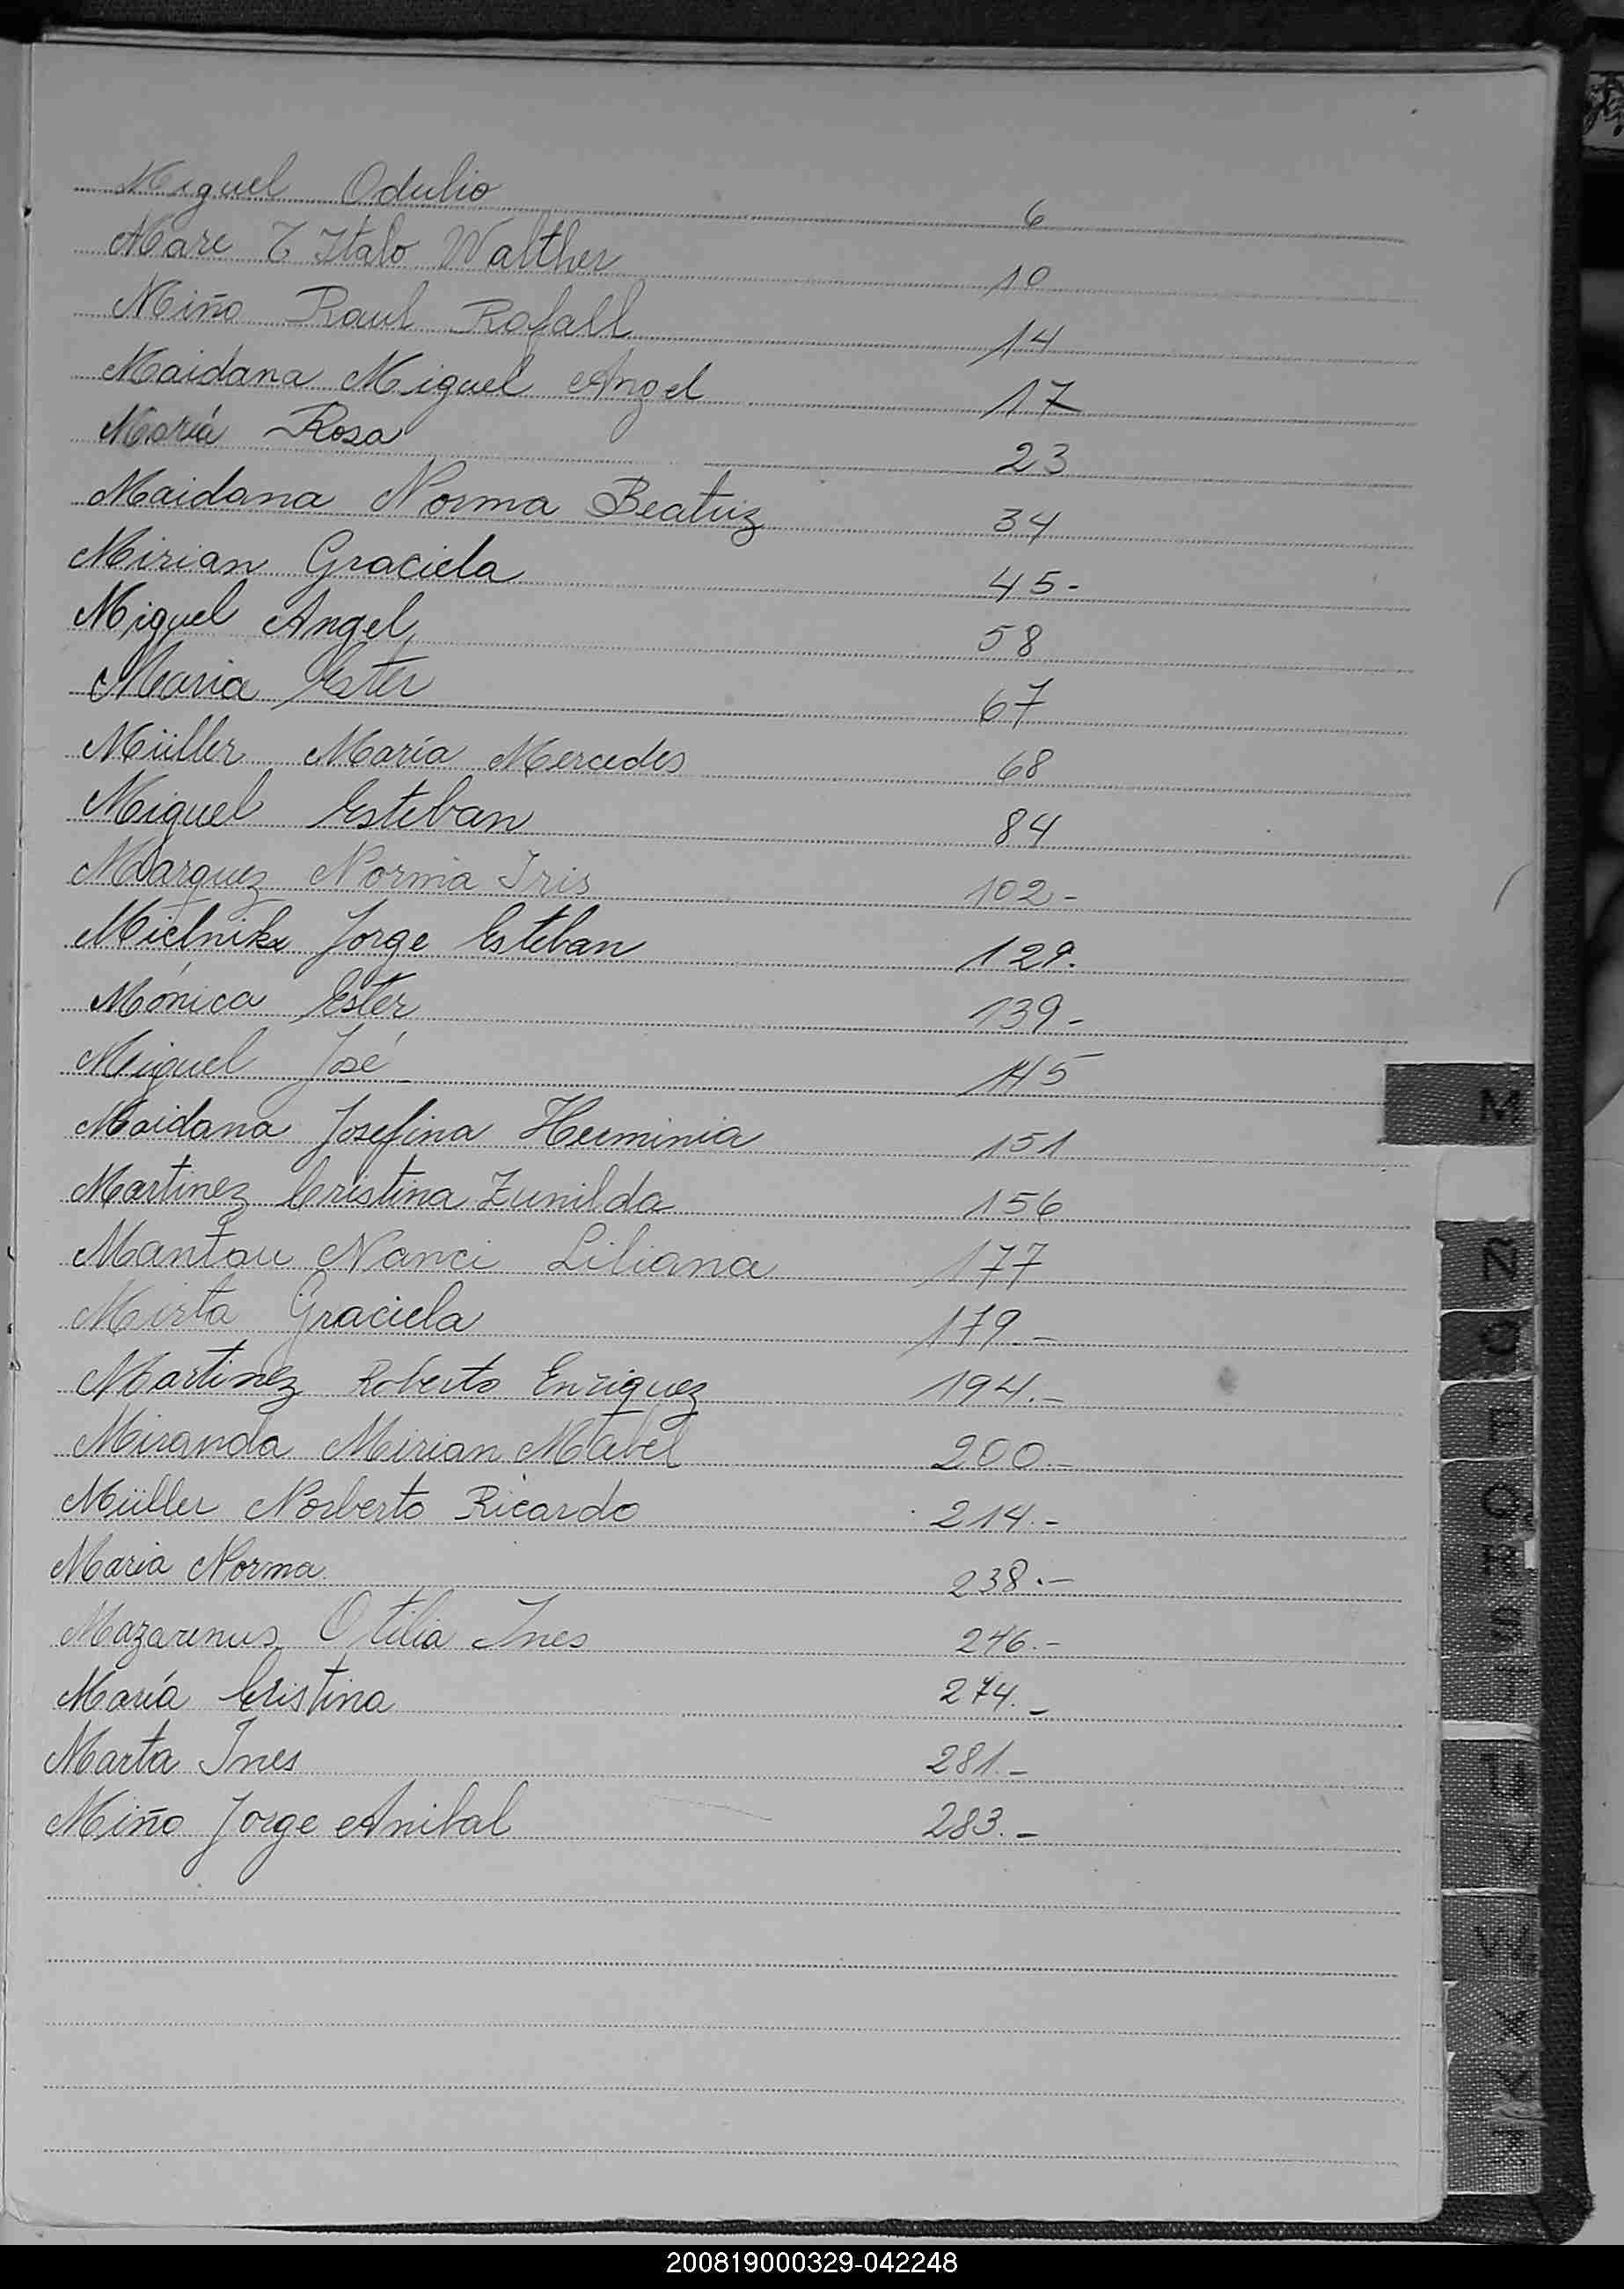 Miguel Odulio 6
Mare T Italo Walther 10
Miño Raul Rafall 14
Maidana Miguel Angel 17
María Rosa 23
Maidana Norma Beatriz 34
Mirian Graciela 45-
Miguel Angel 58
Maria Ester 67
Müller María Mercedes 68
Miguel Esteban 84
Marquez Norma Iris 102-
Jorge Esteban 129.
Mónica Ester 139-
Miguel José 145
Maidana Josefina Herminia 151
Martinez Cristina Zunilda 156
Mantau Nanci Liliana 177
Mirta Graciela 179.-
Martinez Roberto Enriquez 194.-
Miranda Mirian Mabel 200-
Müller Norberto Ricardo 214.-
Maria Norma 238.-
Mazarenus Otilia Ines 246.-
María Cristina 274.-
Marta Ines 281.-
Miño Jorge Anibal 283.-
M
N
O
P
Q
R
S
T
U
V
W
X
Y
200819000329-042248